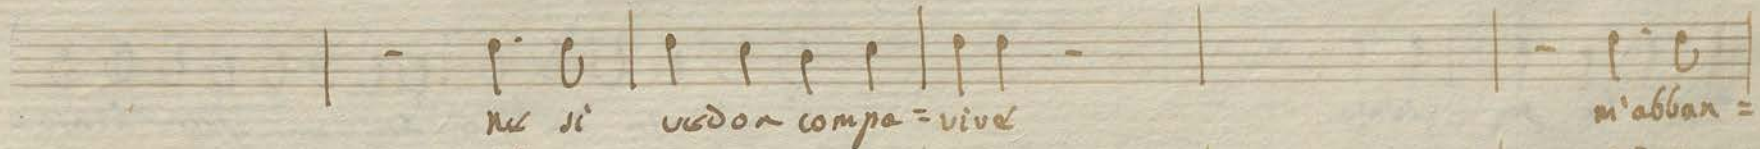 ne si vedon compa=rire m'abban=